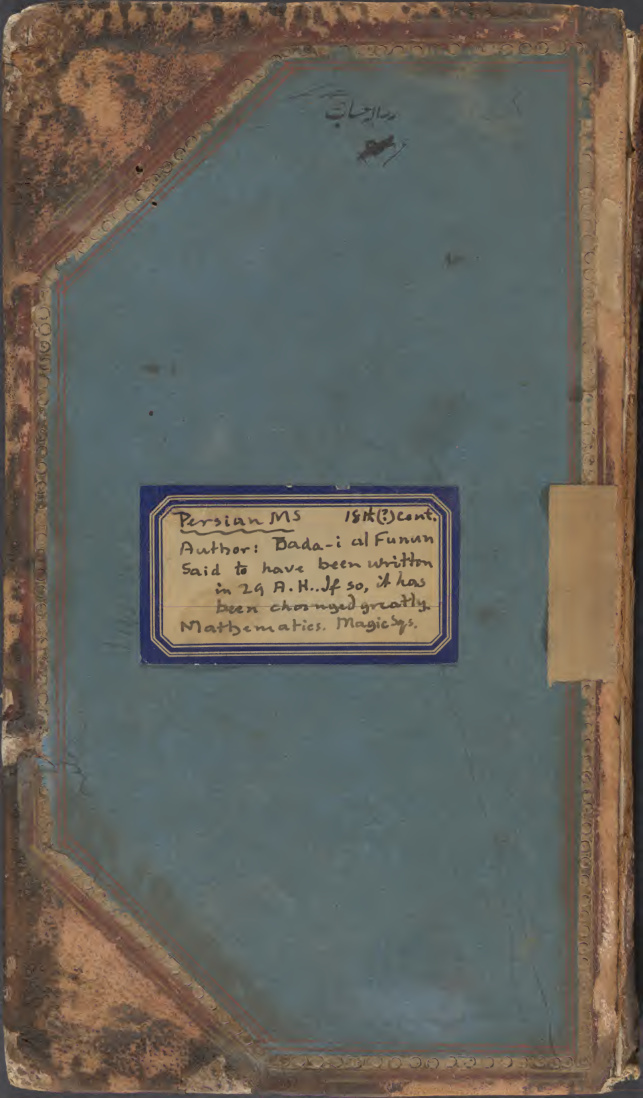 رساله حساب
Persian MS 18th(?) cent.
Author: Bada-i al Funun
Said to have been written
in 29 A.H.. If so, it has
been changed greatly.
Mathematics. Magic Sqs.